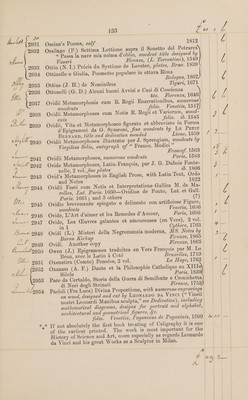 133
2031 Ossian's Poems, calf 1812
2032 Osslago (F.) Settima Lettione sopra il Sonetto del Petrarca
" Passa la nave mia colma d'oblio, woodcut title designed by
Vasari Firenze, (L. Torrentino), 1549
2033 Ottin (N. J.) Précis du Système de Lavater, plates, Brux. 1839
2034 Ottinello e Giulia, Poemetto popolare in ottava Rima
Bologna, 1867
2035 Ottino (J. H.) de Nosocimio Tiguri, 1671
2036 Ottonelli (G. D.) Alcuni buoni Avvisi e Casi di Coscienza
4to. Firenze, 1646
2037 Ovidii Metamorphosis cum R. Regii Enarrationibus, numerous
woodcuts folio. Venetiis, 1517
2038 Ovidii Metamorphoses cum Notis R. Regii et Variorum, woodcuts
folio. ib. 1545
2039 Ovidio, Vita et Metamorphoseo figurato et abbreviato in Forma
d'Epigrammi da G. Symeoni, fine woodcuts by Le Petit
Bernard, title and dedication mended Lione, 1559
2040 Ovidii Metamorphoses illustratæ per J. Sprengium, woodcuts by
Virgilius Solis, autograph of " Franco. Medici "
Francof. 1563
2041 Ovidii Metamorphoses, numerous woodcuts Paris, 1583
2042 Ovidii Metamorphoses, Latin Français, par J. G. Dubois Fontanelle,
2 vol. fine plates ib. 1806
2043 Ovid's Metamorphoses in English Prose, with Latin Text, Ordo
and Notes 1822
2044 Ovidii Fasti cum Notis et Interpretatione Gallica M. de Marolles,
Lut. Paris. 1660—Ovidius de Ponto, Lat et Gall.
Paris. 1661 ; and 3 others
2045 Ovidio brevemente spiegato e delineato con artificiose Figure,
woodcuts Venetia, 1686
2046 Ovide, L'Art d'aimer et les Remedes d'Amour, Paris, 1696
2047 Ovide, Les Œuvres galantes et amoureuses (en Vers), 2 vol.
in 1 Cythère, 1763
2048 Ovidi (L.) Misteri della Negromonzia moderna, MS. Notes by
Baron Kirkup Firenze, 1865
2049 Ovidi. Another copy Firenze, 1865
2050 Owen (J.) Epigrammes traduites en Vers Français par M. Le
Brun, avec le Latin à Coté Bruxelles, 1719
2051 Oxenstirn (Comte) Pensées, 2 vol. La Haye, 1762
2052 Ozanam (A. F.) Dante et la Philosophie Catholique au XIII.
Siècle Paris, 1839
2053 Pace da Certaldo, Storia della Guerra di Semifonte e Cronichetta
di Neri degli Strinati Firenze, 1753
2054 Pacioli (Fra Luca) Divina Proportione, with numerous engravings
on wood, designed and cut by Leonardo da Vinci (" Vincii
nostri Leonardi Manibus sculpta," see Dedication), including
mathematical diagrams, designs for portrait and alphabet,
architectural and geometrical figures, &c.
folio. Venetiis, Paganinus de Paganinis, 1509
*** If not absolutely the first book treating of Caligraphy it is one
of the earliest printed. The work is most important for the
History of Science and Art, more especially as regards Leonardo
da Vinci and his great Works as a Sculptor in Milan.